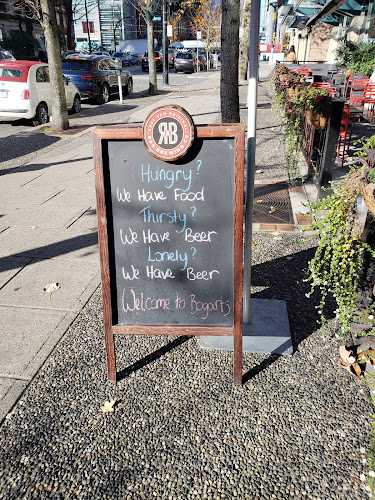 RB
Hungry?
We Have Food
Thirsty?
We Have Beer
Lonely?
We Have Beer
Welcome to Bogarts